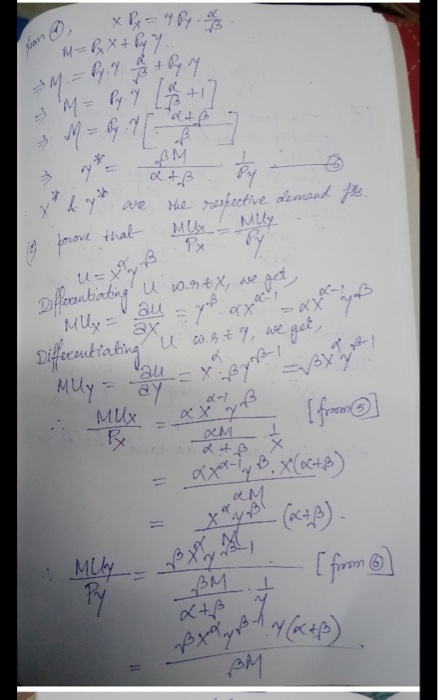 from ④, x Px = y Py · α/β
M = Px X + Py Y
⇒ M = Py · y · α/β + Py · y
⇒ M = Py · y [α/β + 1]
⇒ M = Py · y [(α+β)/β]
⇒ y* = βM/(α+β) · 1/Py —— ⑥
x* & y* are the respective demand fns.
(c) prove that MUx/Px = MUy/Py
U = x^α y^β
Differentiating U w.r.t x, we get,
MUx = ∂u/∂x = y^β · αx^(α-1) = αx^(α-1) y^β
Differentiating U w.r.t y, we get,
MUy = ∂u/∂y = x^α · βy^(β-1) = βx^α y^(β-1)
∴ MUx/Px = αx^(α-1) y^β / (αM/(α+β) · 1/x) [from ⑤]
= αx^(α-1) y^β · x(α+β) / αM
= x^α y^β / M (α+β).
∴ MUy/Py = βx^α y^(β-1) / (βM/(α+β) · 1/y) [from ⑥]
= βx^α y^(β-1) · y(α+β) / βM